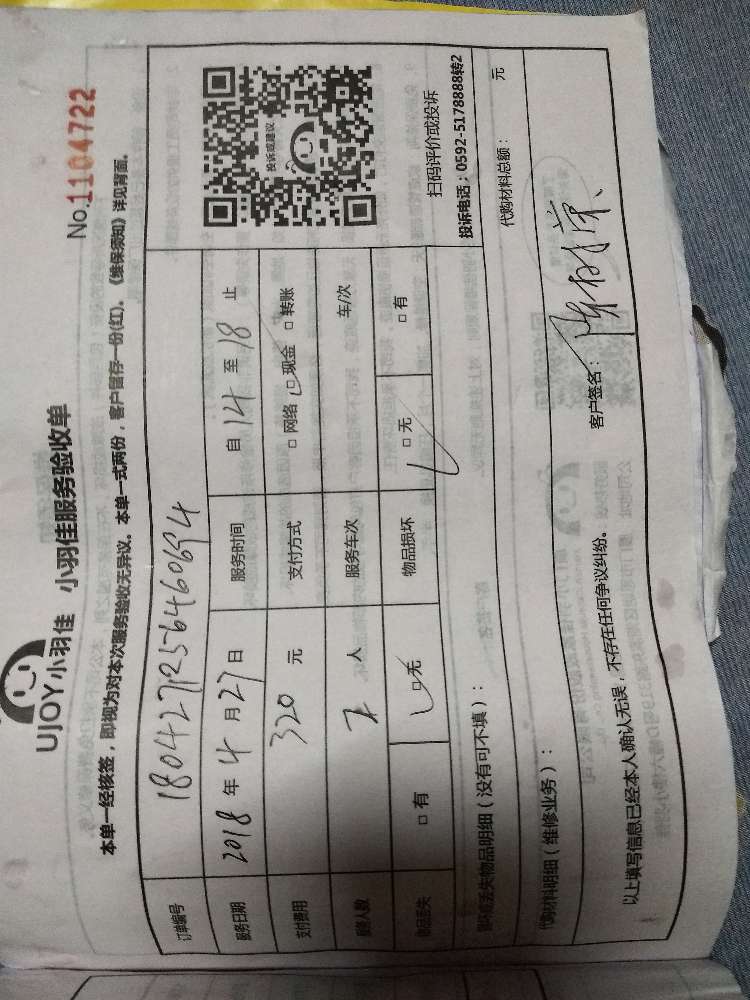 UJOY小羽佳 小羽佳服务验收单
No.1104722
本单一经核签，即视为对本次服务验收无异议。本单一式两份，客户留存一份(红)。《维保须知》详见背面。
订单编号 180427125646069 4
服务日期 2018 年 4 月 27 日 服务时间 自 14 至 18 止
支付费用 320 元 支付方式 □ 网络 □ 现金 □ 转账
服务人数 2 人 服务车次 车/次
物品丢失 □ 有 □ 无 物品损坏 □ 无 □ 有
投诉或建议
扫码评价或投诉
投诉电话：0592-5178888转2
损坏或丢失物品明细（没有可不填）：
代购材料明细（维修业务）： 代购材料总额： 元
以上填写信息已经本人确认无误，不存在任何争议纠纷。 客户签名：